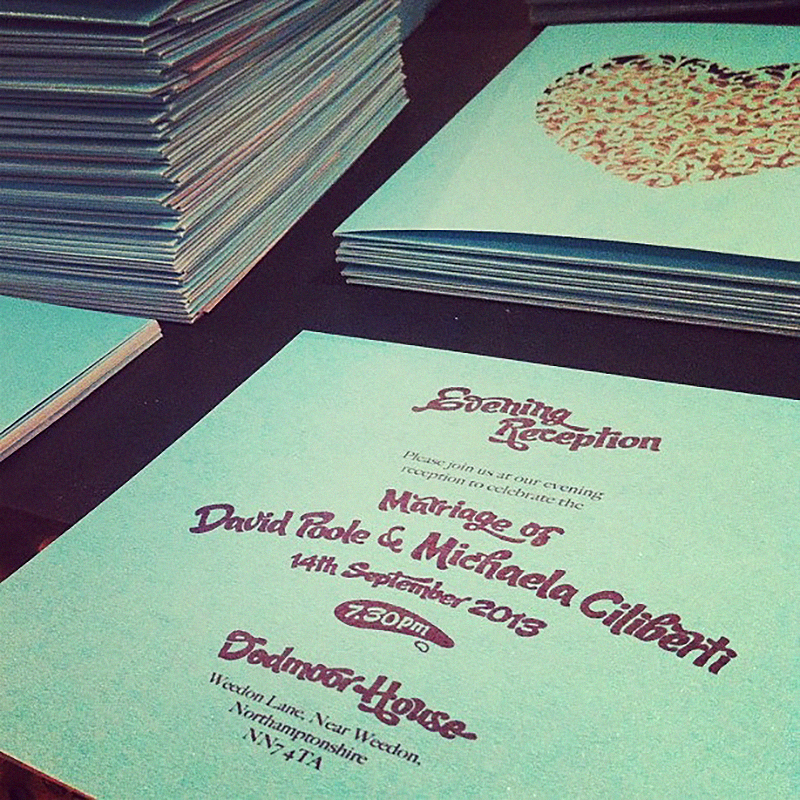 Evening
Reception
Please join us at our evening
reception to celebrate the
Marriage of
David Poole & Michaela Ciliberti
14th September 2013
7.30pm
Dodmoor House
Weedon Lane, Near Weedon,
Northamptonshire
NN7 4TA